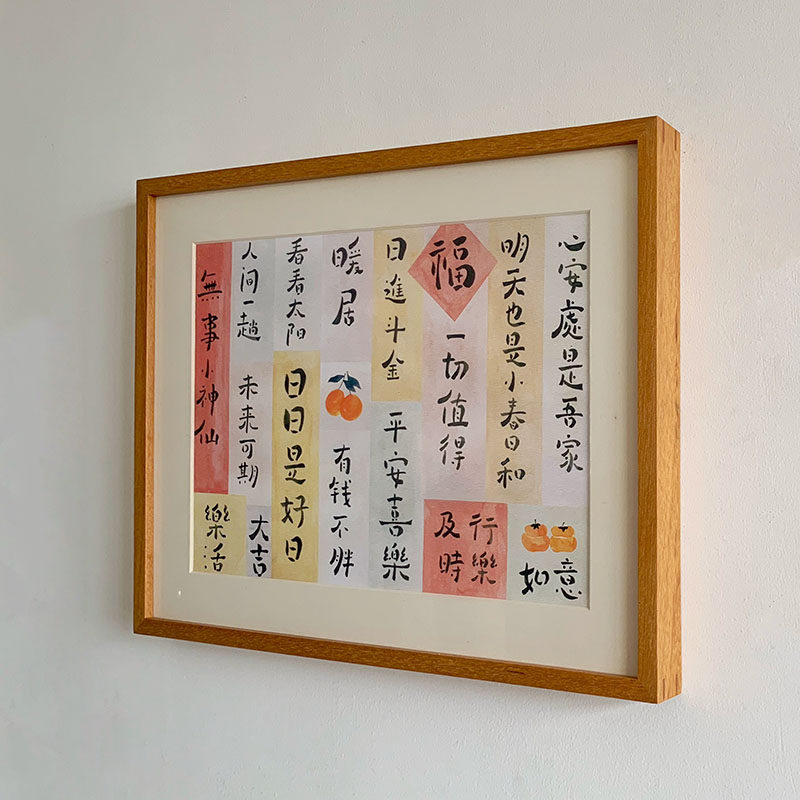 無事小神仙
樂活
人间一趟
未来可期
大吉
看看太阳
日日是好日
暖居
有钱不胖
日進斗金
平安喜樂
福
一切值得
及時
行樂
明天也是小春日和
心安處是吾家
如意